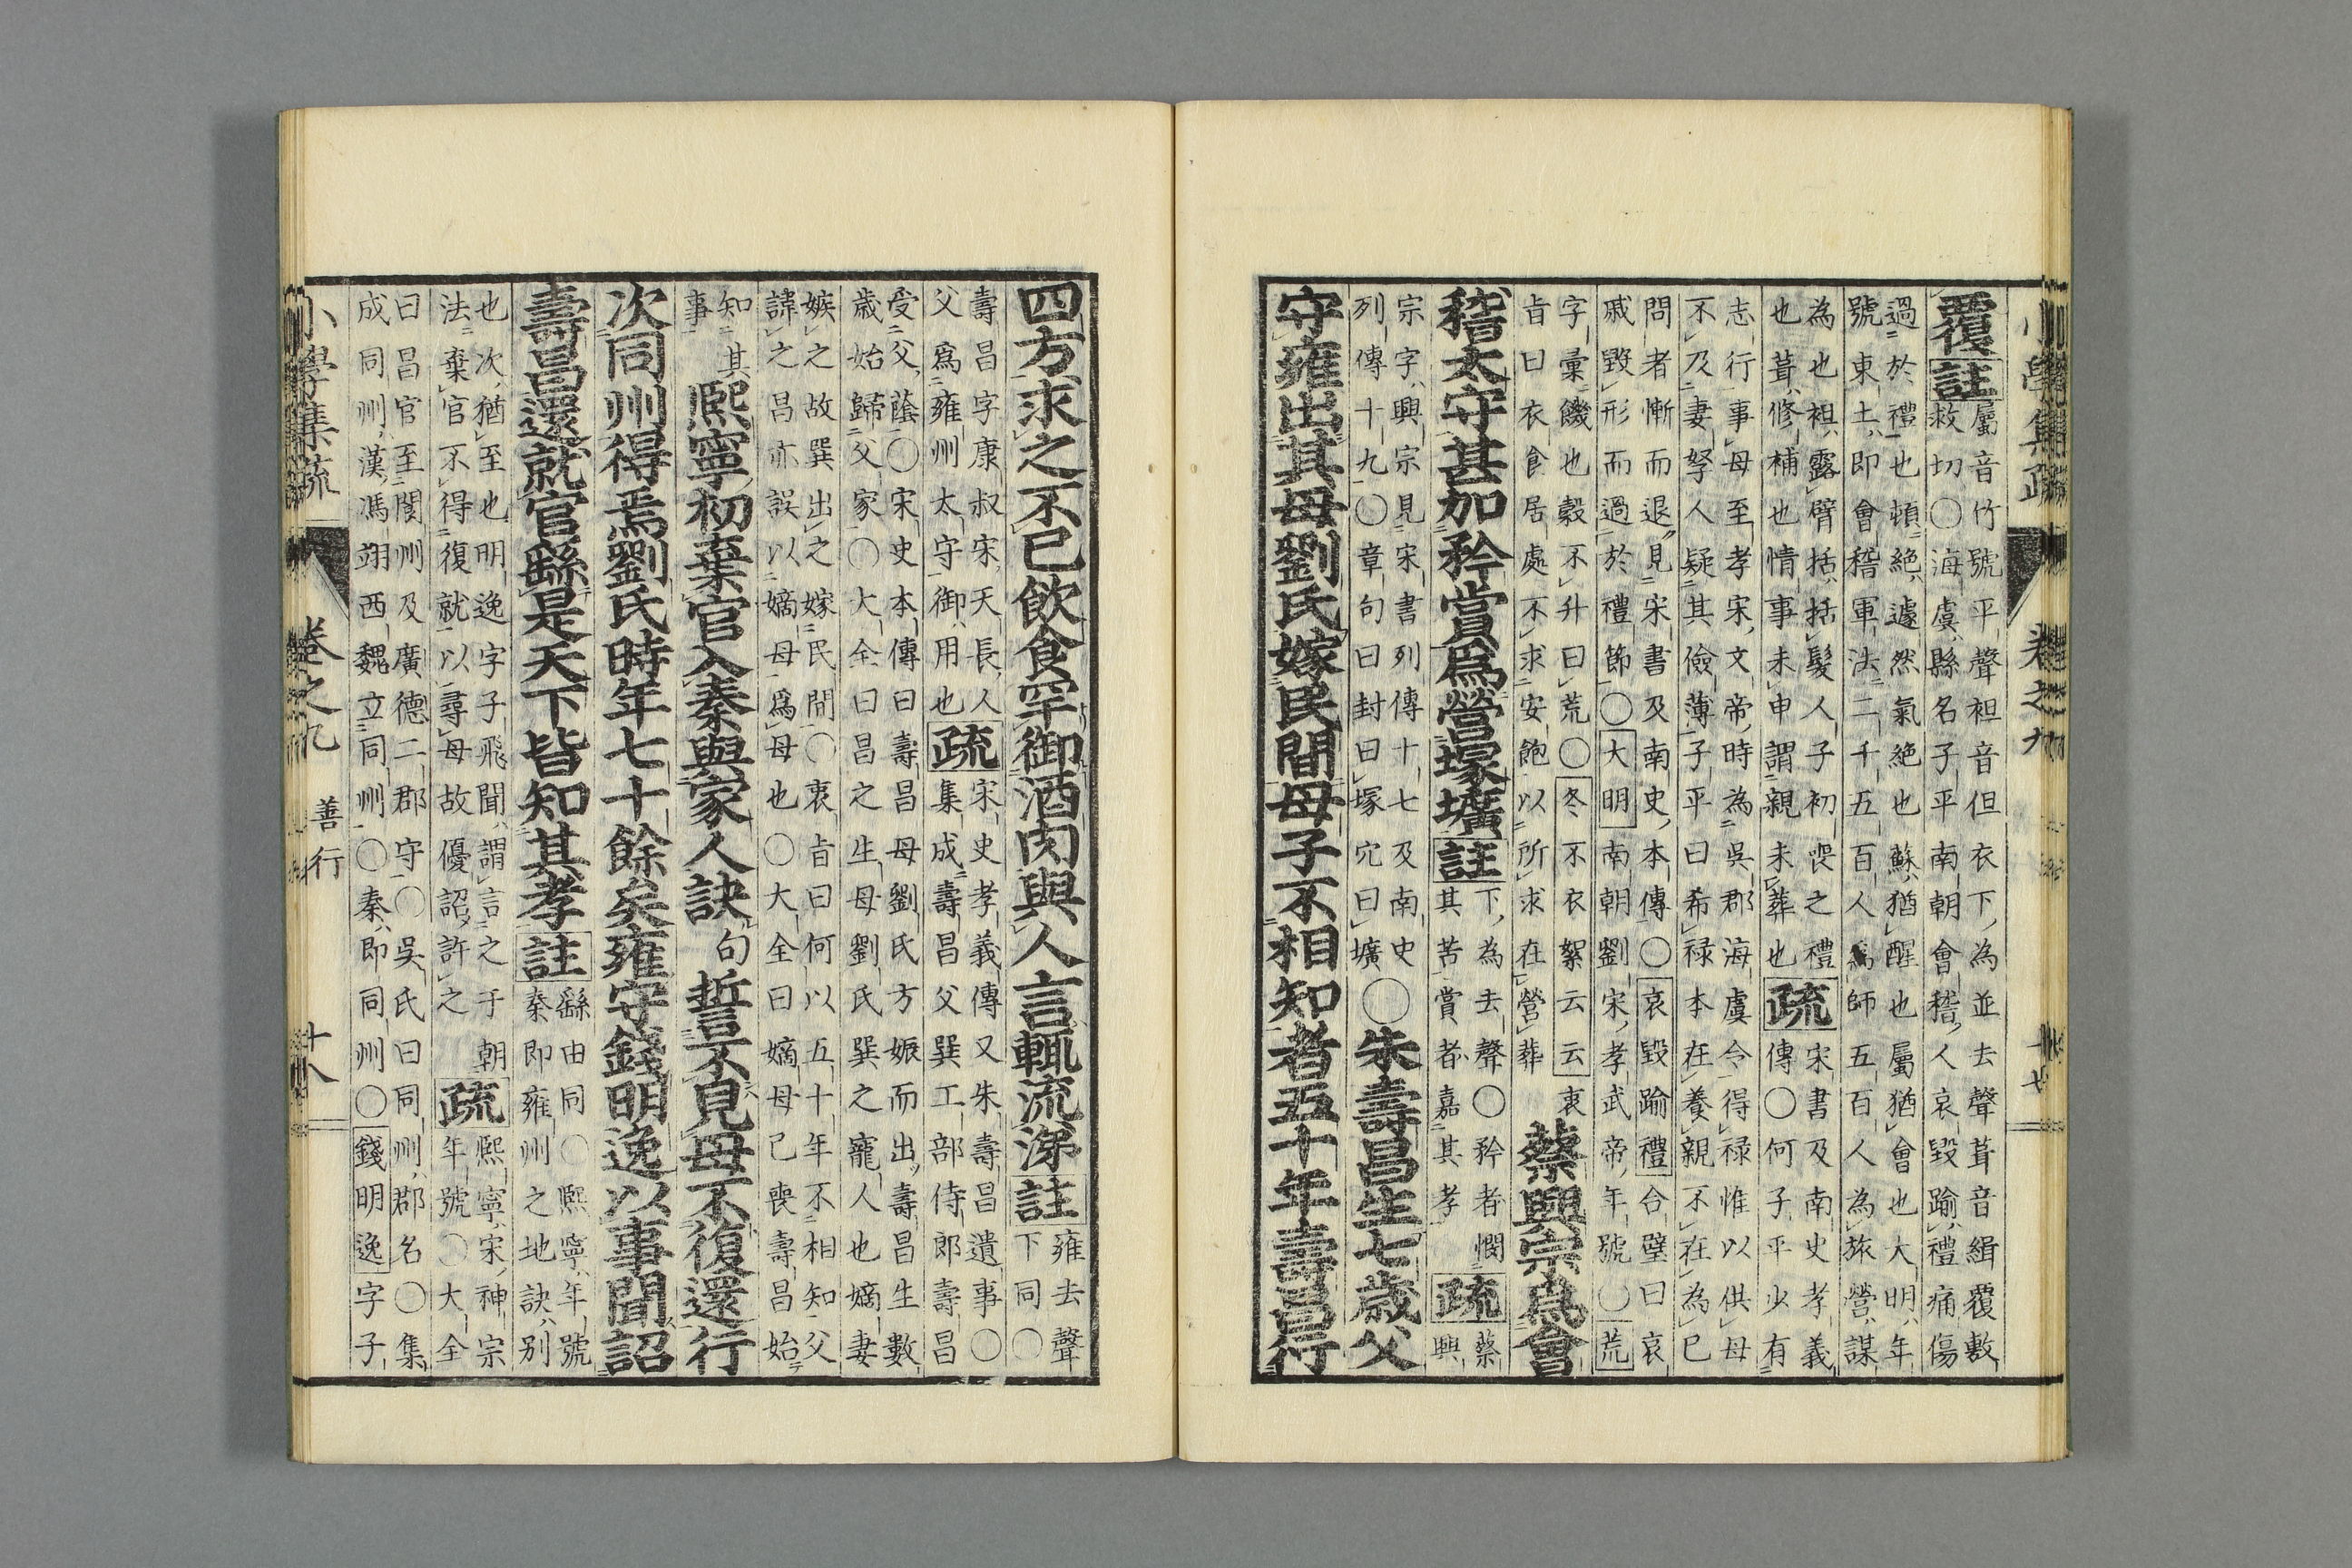 覆註屬音竹號平聲袒音但衣下為並去聲葺音緝覆敷
救切○海虞縣名子平南朝會稽人哀毀踰禮痛傷
過於禮也頓絕遽然氣絕也蘇猶醒也屬猶會也大明年
號東土即會稽軍法二千五百人為師五百人為旅營謀
為也袒露臂括括髮人子初喪之禮
也葺修補也情事未申謂親未葬也疏宋書及南史孝義
傳○何子平少有
志行事母至孝宋文帝時為吳郡海虞令得祿惟以供母
不及妻孥人疑其儉薄子平曰希祿本在養親不在為己
問者慚而退見宋書及南史本傳○哀毀踰禮合璧曰哀
戚毀形而過於禮節○大明南朝劉宋孝武帝年號○荒
字彙饑也穀不升曰荒○冬不衣絮云云衷
旨曰衣食居處不求安飽以所求在營葬
蔡興宗為會
稽太守甚加矜賞爲營塚壙註下為去聲○矜者憫
其苦賞者嘉其孝疏蔡
興
宗字興宗見宋書列傳十七及南史
列傳十九○章句曰封曰塚穴曰壙○朱壽昌生七歲父
守雍出其母劉氏嫁民間母子不相知者五十年壽昌行
小學集疏 卷之九
四方求之不已飲食罕御酒肉與人言輒流涕註雍去聲
下同○
壽昌字康叔宋天長人
父爲雍州太守御用也疏宋史孝義傳又朱壽昌遺事○
集成壽昌父巽工部侍郎壽昌
受父蔭○宋史本傳曰壽昌母劉氏方娠而出壽昌生數
歲始歸父家○大全曰昌之生母劉氏巽之寵人也嫡妻
嫉之故巽出之嫁民間○衷旨曰何以五十年不相知父
諱之昌亦誤以嫡母爲母也○大全曰嫡母已喪壽昌始
知其
事熙寧初棄官入秦與家人訣句誓不見母不復還行
次同州得焉劉氏時年七十餘矣雍守錢明逸以事聞詔
壽昌還就官繇是天下皆知其孝註繇由同○熙寧年號
秦即雍州之地訣別
也次猶至也明逸字子飛聞謂言之于朝
法棄官不得復就以尋母故優詔許之疏熙寧宋神宗
年號○大全
曰昌官至閬州及廣德二郡守○吳氏曰同州郡名○集
成同州漢馮翊西魏立同州○秦即同州○錢明逸字子
小學集疏 卷之九 善行 十八